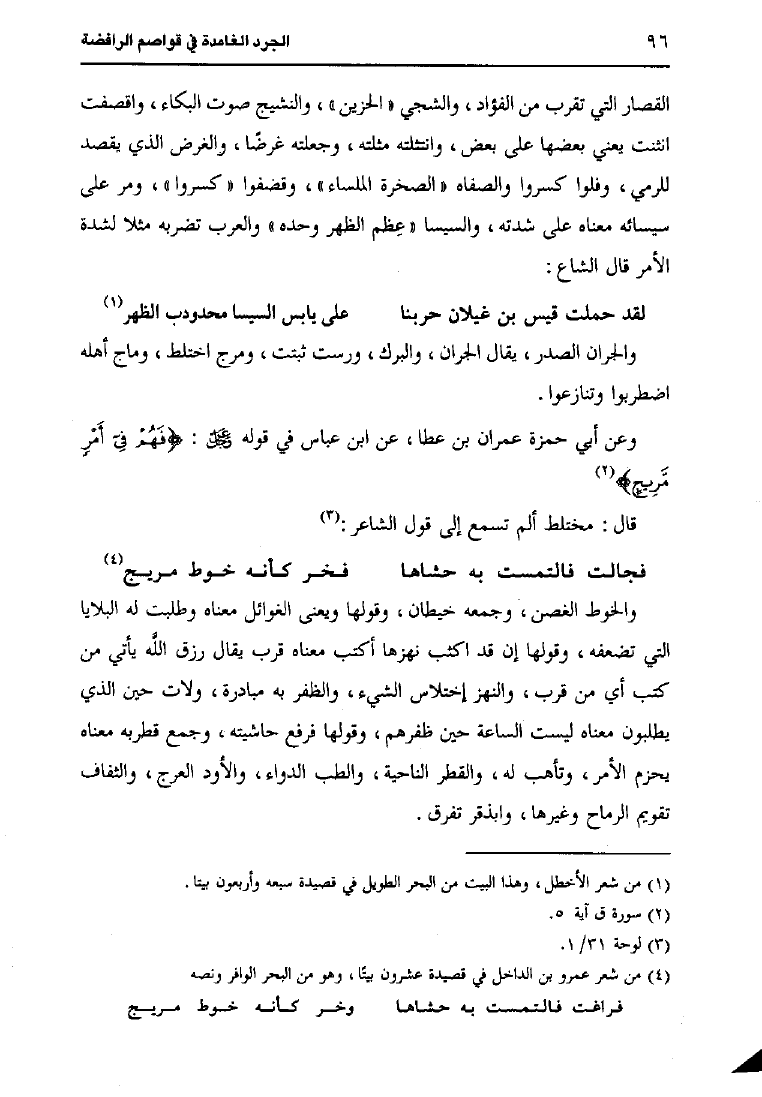 ٩٦ الجرد الغامدة في قواصم الرافضة
القصار التي تقرب من الفؤاد ، والشجي «الحزين» ، والنشيج صوت البكاء ، واقصفت
انثنت يعني بعضها على بعض ، وانتثلته مثلته ، وجعلته غرضًا ، والغرض الذي يقصد
للرمي ، وفلوا كسروا والصفاه «الصخرة الملساء» ، وقضفوا «كسروا» ، ومر على
سيسائه معناه على شدته ، والسيسا «عِظم الظهر وحده» والعرب تضربه مثلا لشدة
الأمر قال الشاع :
لقد حملت قيس بن غيلان حربنا على يابس السيسا محدودب الظهر(١)
والجران الصدر ، يقال الجران ، والبرك ، ورست ثبتت ، ومرج اختلط ، وماج أهله
اضطربوا وتنازعوا .
وعن أبي حمزة عمران بن عطا ، عن ابن عباس في قوله ﷿ : ﴿فَهُمْ فِىٓ أَمْرٍ
مَّرِيجٍ﴾(٢)
قال : مختلط ألم تسمع إلى قول الشاعر :(٣)
فجالت فالتمست به حشاها فخر كأنه خوط مريج(٤)
والخوط الغصن ، وجمعه خيطان ، وقولها ويعنى الغوائل معناه وطلبت له البلايا
التي تضعفه ، وقولها إن قد اكثب نهزها أكتب معناه قرب يقال رزق اللَّه يأتي من
كتب أي من قرب ، والنهز إختلاس الشيء ، والظفر به مبادرة ، ولات حين الذي
يطلبون معناه ليست الساعة حين ظفرهم ، وقولها فرفع حاشيته ، وجمع قطربه معناه
يحزم الأمر ، وتأهب له ، والقطر الناحية ، والطب الدواء ، والأود العرج ، والثفاف
تقويم الرماح وغيرها ، وابذقر تفرق .
(١) من شعر الأخطل ، وهذا البيت من البحر الطويل في قصيدة سبعه وأربعون بيتا .
(٢) سورة ق آية ٥.
(٣) لوحة ١/٣١.
(٤) من شعر عمرو بن الداخل في قصيدة عشرون بيتًا ، وهو من البحر الوافر ونصه
فراغت فالتمست به حشاها وخر كأنه خوط مريج